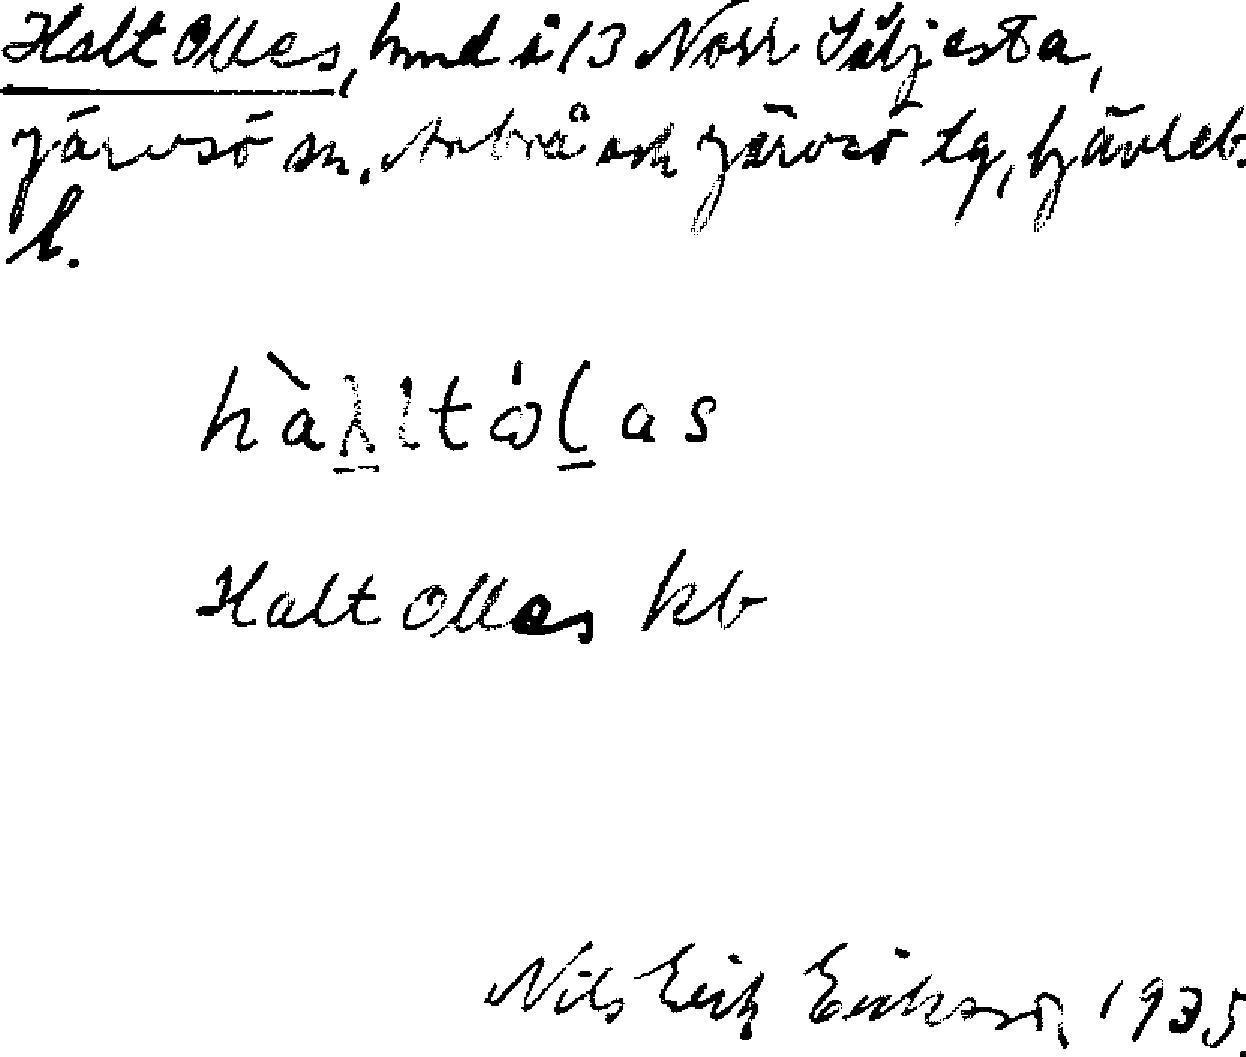 Halt Olles, hmd å 13 Norr Säljesta,
Järvsö sn, Arbrå och Järvsö tg, Gävleb.
l.
hàltólas
Halt Olles kb
Nils Erik Eriksson 1935.